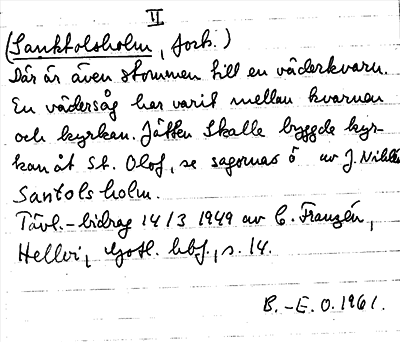 II
(Sanktolsholm, forts.)
Där är även stommen till en väderkvarn.
En vädersåg har varit mellan kvarnen
och kyrkan. Jätten Skalle byggde kyr-
kan åt St. Olof, se sagornas ö av J. Nihlén
Santols holm.
Tävl.-bidrag 14/3 1949 av C. Franzén,
Hellvi, Gotl. hbf., s. 14.
B.-E. O. 1961.